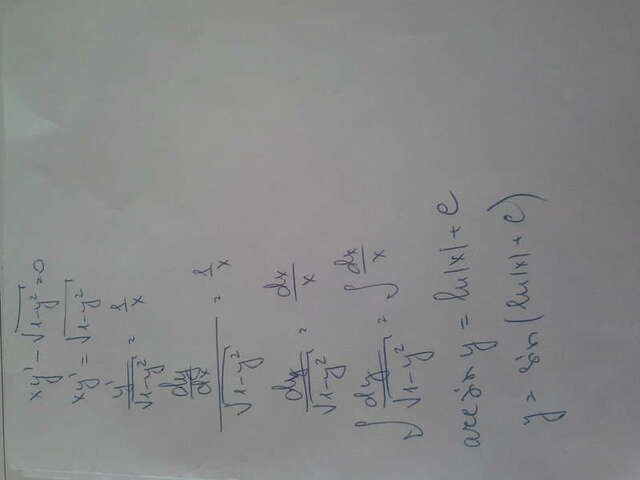 xy' - √(1-y²) = 0
xy' = √(1-y²)
y'/√(1-y²) = 1/x
(dy/dx)/√(1-y²) = 1/x
dy/√(1-y²) = dx/x
∫ dy/√(1-y²) = ∫ dx/x
arcsin y = ln|x| + C
y = sin(ln|x| + C)